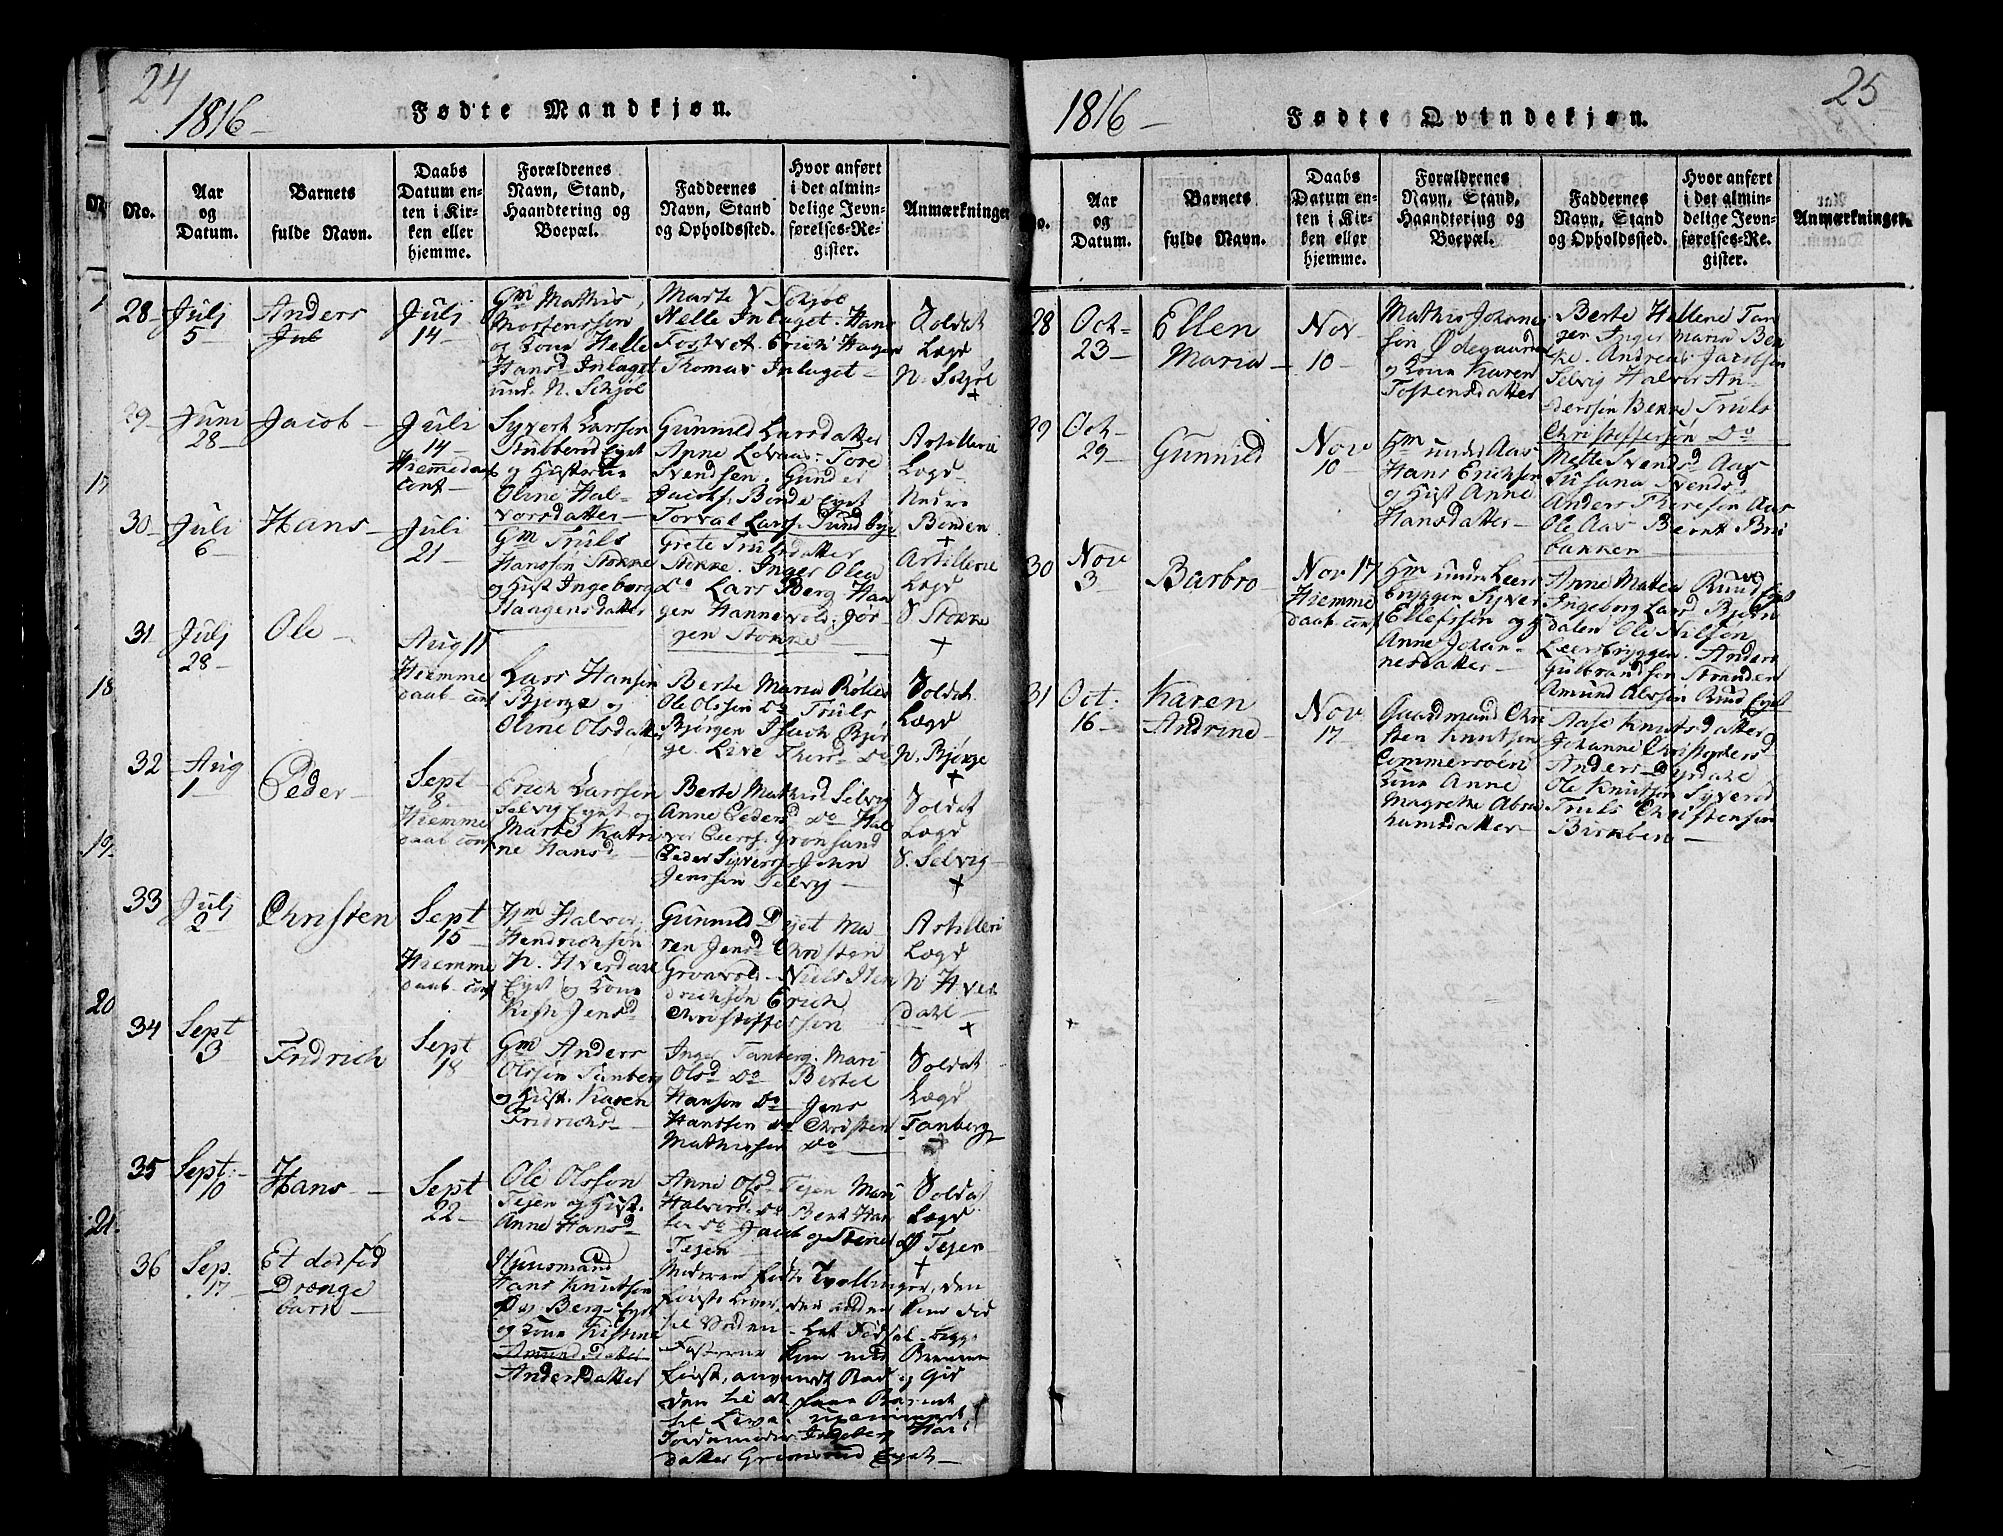 24
1816
Fødte Mandkjøn.
No.
Aar og Datum.
Barnets fulde Navn.
Daabs Datum enten i Kirken eller hjemme.
Forældrenes Navn, Stand, Haandtering og Boepæl.
Faddernes Navn, Stand og Opholdssted.
Hvor anført i det almindelige Jevnførelses-Register.
Anmærkninger
28
Julj
5
Anders
Julj
14
Gm Mathis
Mortensson
og Kone Helle
Hansd Inlaget
und. N. Schjøl
Marte N Schjøl
Helle Inlaget. Hans
Fostvet. Erich Hagen
Thomas Inlaget
Soldat
Lægd
N. Schjøl
29
Juni
28
Jacob
Juli
14
Hiemedaab
conf
Syvert Larsson
Stubberud Eyet
og Hustrue
Oline Hal-
vorsdatter
Gunnild Larsdatter
Anne Lovaas. Tore
Svendsen. Gunder
Jacobs. Bende Eyet
Torval Larss. Sundbye
Artilleri
Lægd
Nedre
Benden
30
Juli
6
Hans
Juli
21
Gm Truls
Hanssøn Stokke
og Hust Ingeborg
Haagensdatter
Grete Trulsdatter
Stokke. Inger Olea
do Lars Berg Haa
gen Hannevold. Jør-
gen Stokke
Artillerie
Lægd
S Stokke
31
Julj
28
Ole
Aug 11
Hiemme
daab conf
Lars Hansen
Bjerge og
Oline Olsdatter
Berte Maria
Ole Olssen do Truls
Bjørgen Isach Bjør
ge. Live Thersd do
Soldat
Lægd
N. Bjørge
32
Aug
1
Peder
Sept
8
Hiemme
daab conf
Erich Larssen
Selvig Eyet og
Marte Katri
ne Hansd
Berte Mathisd Selvig
Anne Pedersd do Hal
vor Peerss. Grønsund
Peder Syverss. John
Jenssøn Selvig
Soldat
Lægd
S. Selvig
33
Julj
2
Christen
Sept
15
Hiemme
daab conf
Hm Halvor
Hendrichsøn
N. Hverdahl
Eyet og Kone
Kisti Jensd
Gunnild Dyet Ma-
ren Jensd Christen
Gronvold. Niels Hen
drichsøn Erich
Christoffersøn
Artilleri
Lægd
N Hver
dahl
34
Sept
3
Fridrich
Sept
18
Gm Anders
Olssøn Tanberg
og Hust. Karen
Fridrichsd
Inger Tanberg. Mari
Olsd do Bertel
Hansøn do Jens
Hanssen do Christen
Mathiesen do
Soldat
Lægd
Tanberg
35
Sept.
10
Hans
Sept
22
Ole Olsson
Tejen og Hust.
Anne Hansd
Anne Olsd Tejen Mari
Halvorsd do Bert Han
sen do Jacob og Steners
Tejen
Soldat
Lægd
Ø Tejen
36
Sep.
17
Et dødfød
Drænge
barn
Huusmand
Hans Knutsøn
Paa Berg Eyet
og Kone Kistine
Amundsdatter
Andersdatter
Moderen fødte Tvellinger, den
første levende, den anden kom død
til Verden. Let Fødsel. Begge
Fosterne kom med Benene
først, anvendt Bad og Gni
den til at faae Barnet
til Live.
Jordemoder Ingeborg Han
datter Grønsund Eyet
25
1816
Fødte Qvindekjøn.
No.
Aar og Datum.
Barnets fulde Navn.
Daabs Datum enten i Kirken eller hjemme.
Forældrenes Navn, Stand, Haandtering og Boepæl.
Faddernes Navn, Stand og Opholdssted.
Hvor anført i det almindelige Jevnførelses-Register.
Anmærkninger.
28
Oct-
23
Ellen
Maria
Nov
10
Mathis Johane
søn Ødegaarden
og Kone Karen
Tostensdatter
Berte Hellene Tan
gen Inger Maria Bek
ke. Andreas Jacobsen
Selvig Halvor An-
derssøn Bekke Truls
Christoffersøn do
29
Oct
29
Gunnild
Nov
10
Hm under Aas
Hans Erichsen
og Hust Anne
Hansdatter
Mette Svendsd Aas
Susana Svendsd
Anders Thoresøn Aas
Ole Aas Bernt Bru
bakken
30
Nov
3
Barbro
Nov 17
Hiemme
daab conf
Hm under Leer
bryggen Syver
Ellefssøn og H
Anne Johan-
nesdatter
Anne Matea Ruud Eyet
Ingeborg Larsd Bjørn
dalen Ole Nilsen
Leerbryggen. Anders
Gulbrandsen Stranden
Amund Alfsøn Ruud Eyet
31
Oct:
16
Karen
Andrine
Nov
17
Gaardmand Chri
sten Knutsøn
Sommersøen
Kone Anne
Magrethe Abra
hamsdatter
Aase Knutsdatter
Johanne Christophersd
Anders Dysdahl
Ole Knutsøn Syversd
Truls Christensøn
Birkben
17
18
19
20
21